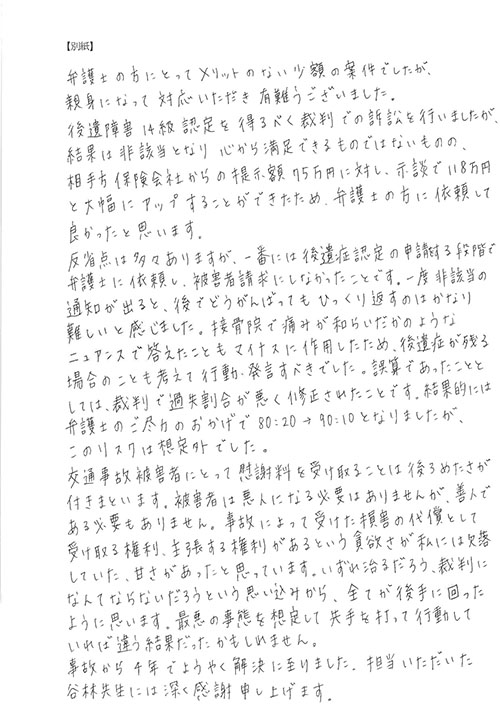 【別紙】
弁護士の方にとってメリットのない少額の案件でしたが、
親身になって対応いただき有難うございました。
後遺障害14級認定を得るべく裁判での訴訟を行いましたが、
結果は非該当となり心から満足できるものではないものの、
相手方保険会社からの提示額75万円に対し、示談で118万円
と大幅にアップすることができたため、弁護士の方に依頼して
良かったと思います。
反省点は多々ありますが、一番には後遺症認定の申請する段階で
弁護士に依頼し、被害者請求にしなかったことです。一度非該当の
通知が出ると、後でどうがんばってもひっくり返すのはかなり
難しいと感じました。接骨院で痛みが和らいだかのような
ニュアンスで答えたこともマイナスに作用したため、後遺症が残る
場合のことも考えて行動、発言すべきでした。誤算であったことと
しては、裁判で過失割合が悪く修正されたことです。結果的には
弁護士のご尽力のおかげで80:20→90:10となりましたが、
このリスクは想定外でした。
交通事故被害者にとって慰謝料を受け取ることは後ろめたさが
付きまといます。被害者は悪人になる必要はありませんが、善人で
ある必要もありません。事故によって受けた損害の代償として
受け取る権利、主張する権利があるという貪欲さが私には欠落
していた、甘さがあったと思っています。いずれ治るだろう、裁判に
なんてならないだろうという思い込みから、全てが後手に回った
ように思います。最悪の事態を想定して先手を打って行動して
いれば違う結果だったかもしれません。
事故から4年でようやく解決に至りました。担当いただいた
谷林先生には深く感謝申し上げます。